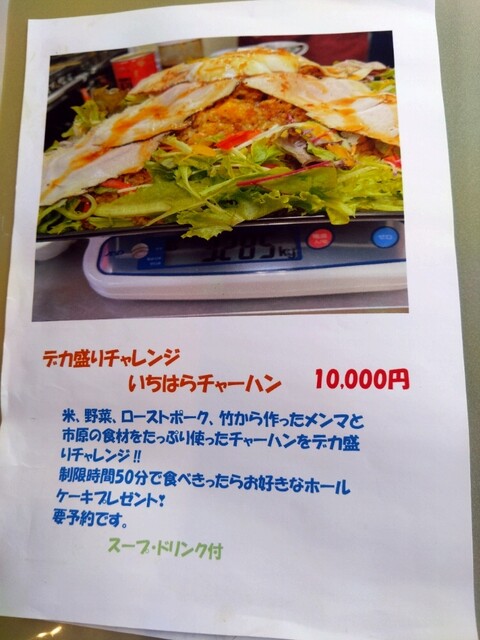 3285kg
ゼロ
デカ盛りチャレンジ
いちはらチャーハン 10,000円
米、野菜、ローストポーク、竹から作ったメンマと
市原の食材をたっぷり使ったチャーハンをデカ盛
りチャレンジ!!
制限時間50分で食べきったらお好きなホール
ケーキプレゼント!
要予約です。
スープ・ドリンク付